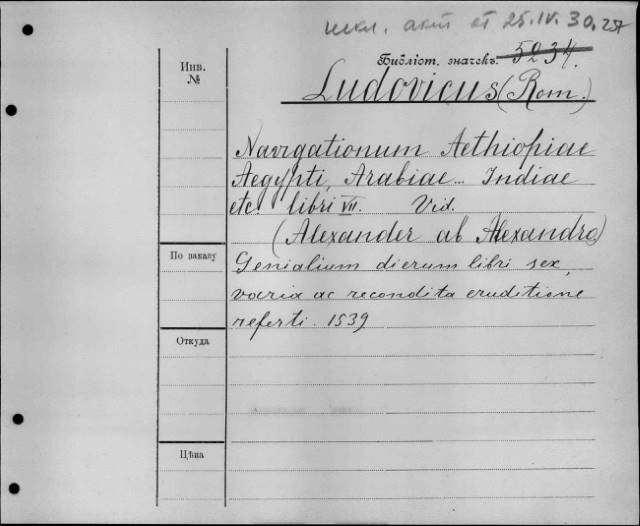 искл. акт от 25.IV.30.
Инв. №
Библіот. значекъ. 5234.
Ludovicus (Rom.)
Navigationum Aethiopiae
Aegypti, Arabiae... Indiae
etc. libri VII. Vid.
(Alexander ab Alexandro)
По заказу
Genialium dierum libri sex,
varia ac recondita eruditione
referti. 1539
Откуда
Цѣна